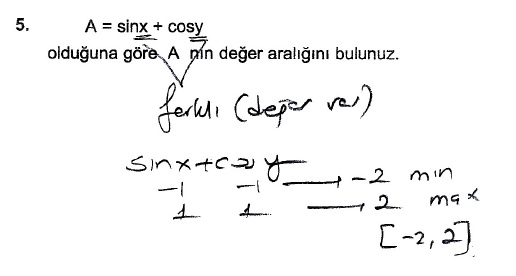 5. A = sinx + cosy
olduğuna göre A nın değer aralığını bulunuz.
farklı (değer var)
sinx+cosy
-1 -1 → -2 min
1 1 → 2 max
[-2, 2]